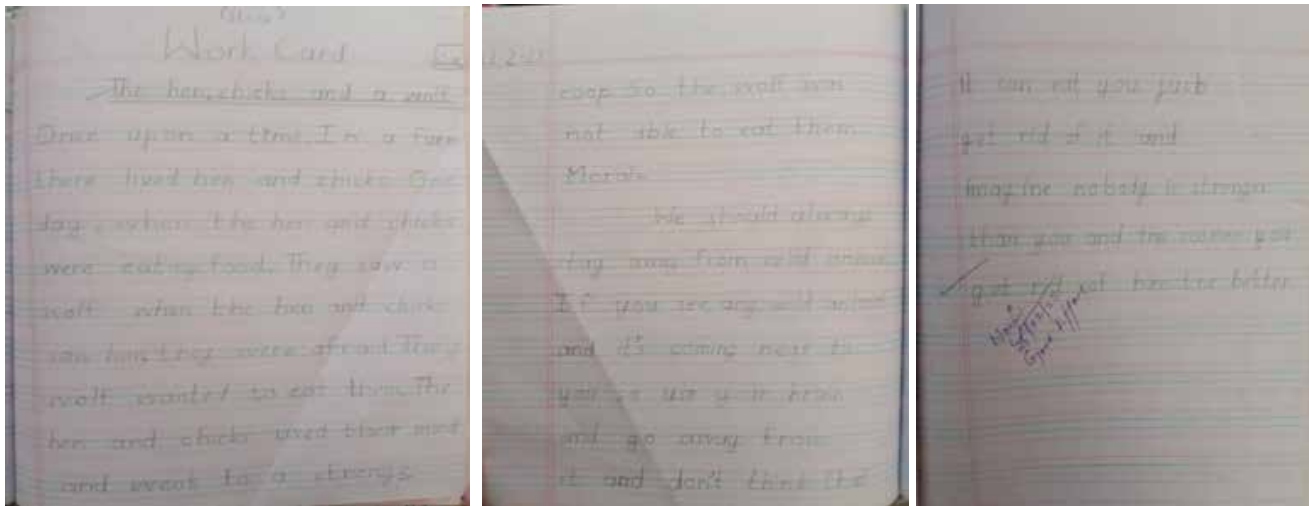 Work Card
The hen, chicks and a wolf
Once upon a time. In a farm
there lived hen and chicks One
day, when the hen and chicks
were eating food. They saw a
wolf when the hen and chicks
saw him they were afraid. They
wolf wanted to eat them. The
hen and chicks used
and went to a strong
coop So the wolf was
not able to eat them
Moral:-
We should always
stay away from wild animal
If you see any wild animal
and it's coming near to
you use your brain
and go away from
it and don't think that
it can eat you just
get rid of it and
Imagine nobody is stronger
than you and the sooner you
get rid of him the better
Good effort